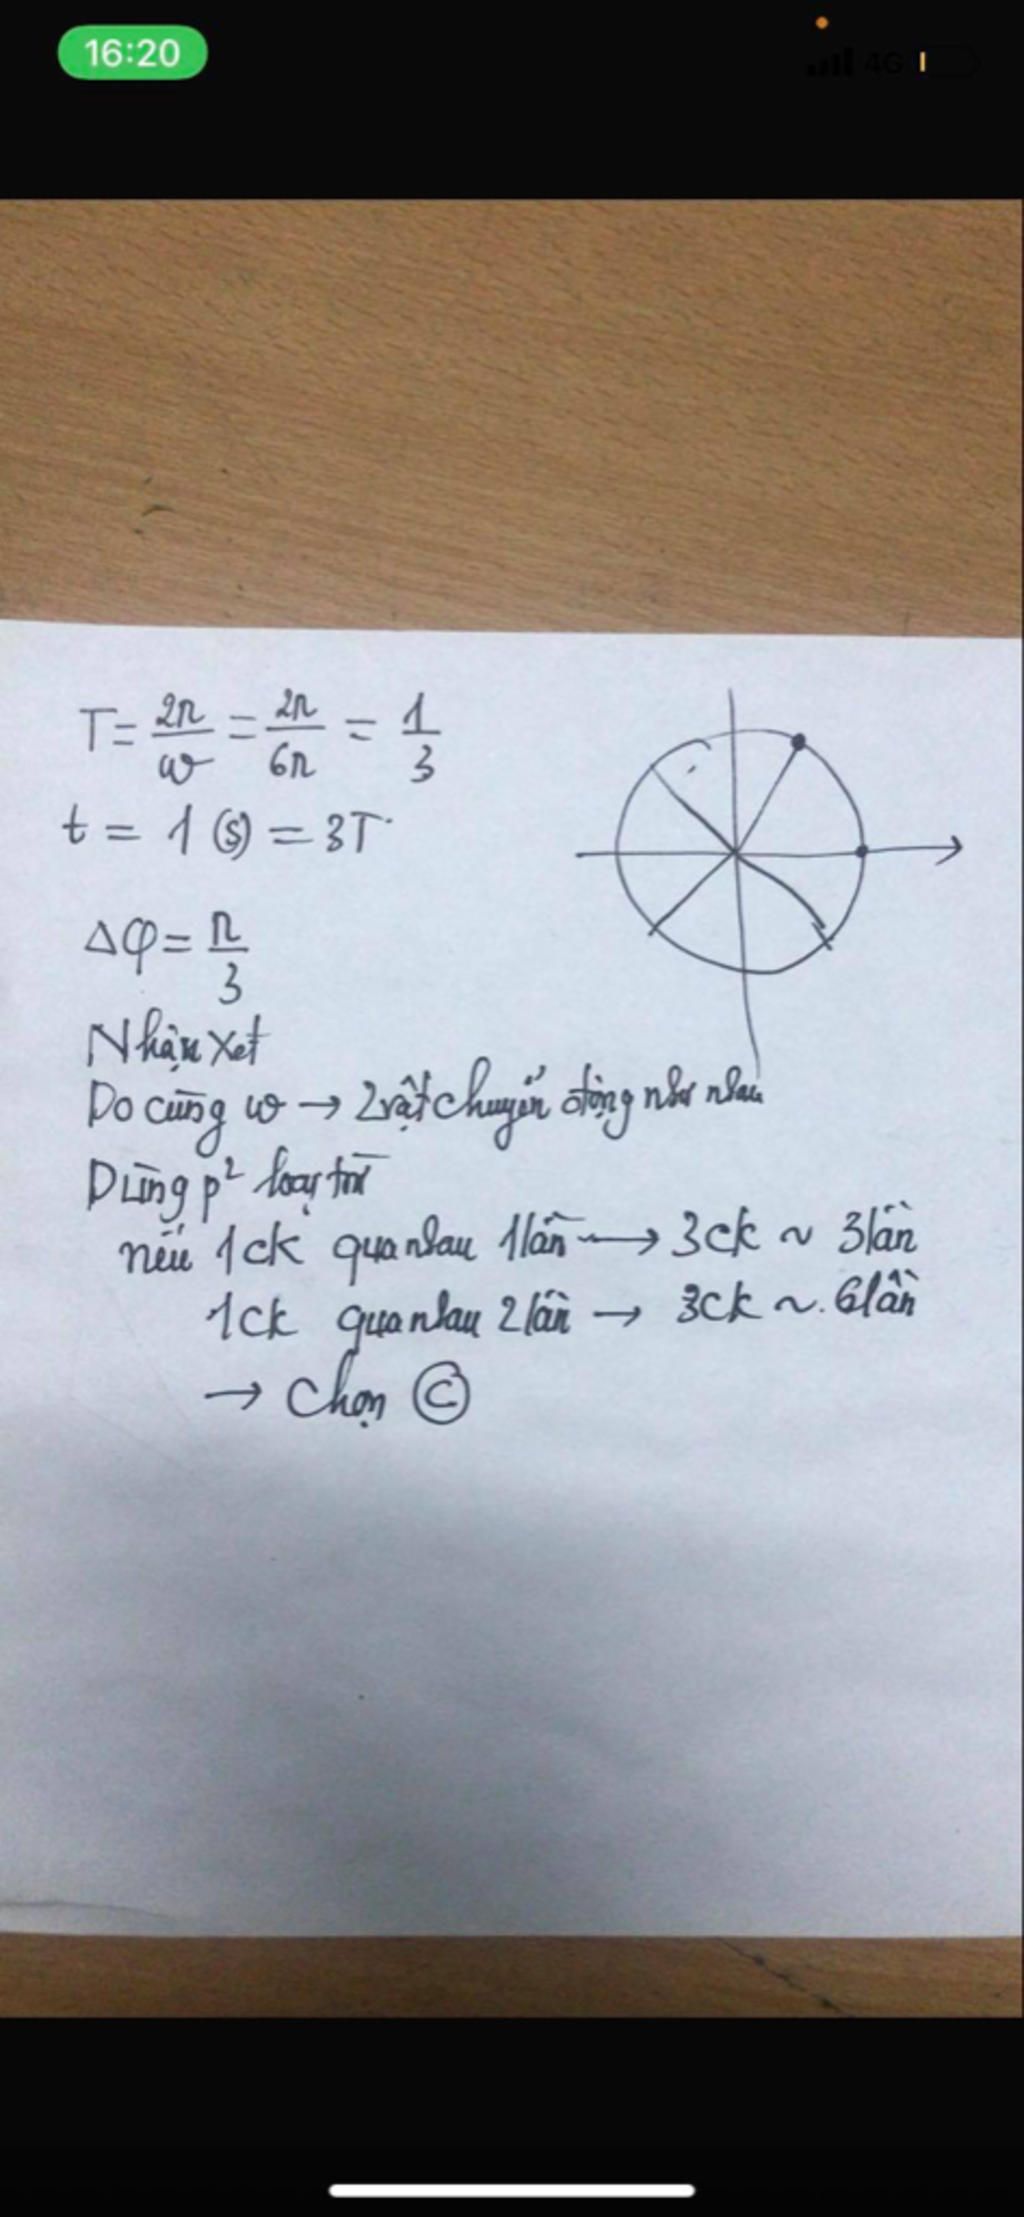 16:20
4G
T = 2π/ω = 2π/6π = 1/3
t = 1 (s) = 3T
Δφ = π/3
Nhận xét
Do cùng ω → 2 vật chuyển động như nhau
Dùng p² loại trừ
nếu 1ck qua nhau 1 lần → 3ck ~ 3 lần
1ck qua nhau 2 lần → 3ck ~ 6 lần
→ Chọn Ⓒ